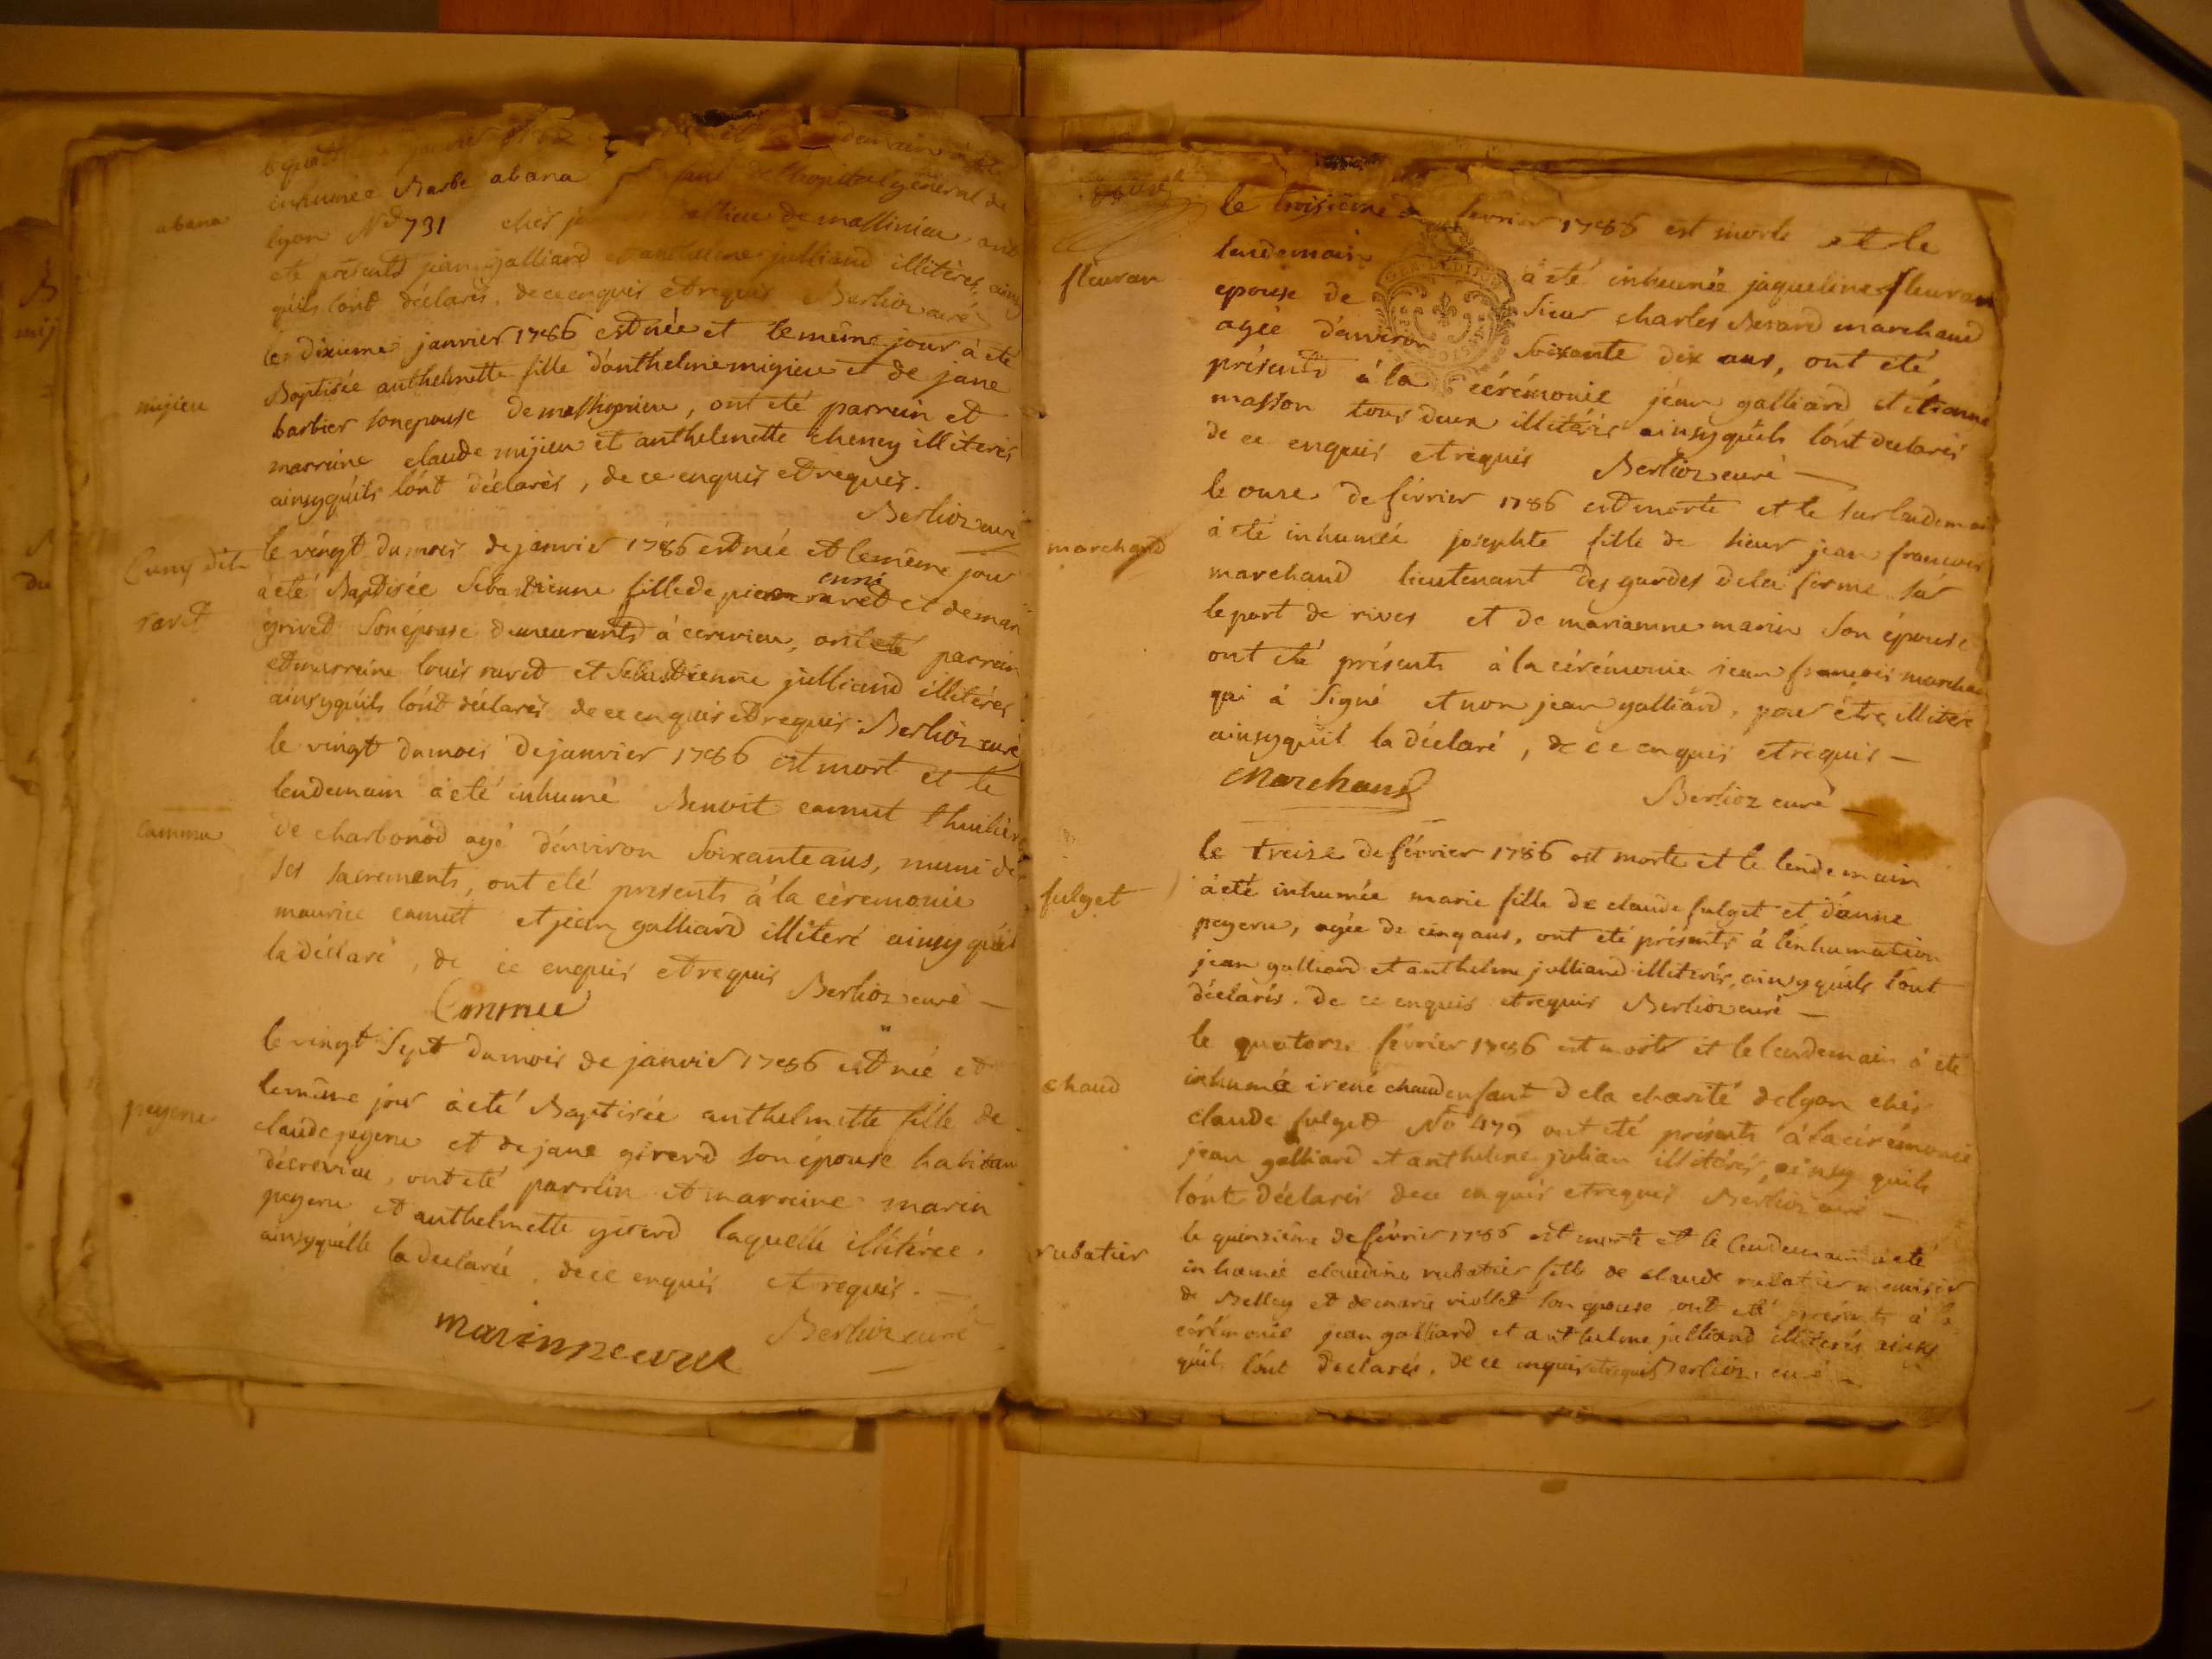 janvier
inhumée Barbe abana de l'hopital général de
abana
lyon No 731 chés de massinieu, ont
eté présents jean galliard et anthelme julliand illitérés, ainsy
qúils lónt déclarés, de ce enquis et requis Berlioz curé
le dixieme janvier 1786 est née et le même jour à eté
Baptisée anthelmette fille d'anthelme migieu et de jane
mijieu
barbier son epouse de massignieu, ont eté parrein et
marreine claude mijieu et anthelmette cheney illiterés
ainsyqúils lónt déclarés, de ce enquis et requis.
Berlioz curé
le vingt du mois de janvier 1786 est née et le même jour
Cuny dit
ravet
cuni
à eté Baptisée Sebastienne fille de pierre ravet et de mari
grived son épouse demeurants à cerevieu, ont eté parrein
et marreine louis raved et Sebastienne julliand illitérés
ainsyqúils lónt déclarés de ce enquis et requis. Berlioz curé
le vingt du mois de janvier 1786 est mort et le
lendemain à eté inhumé Benoit camut
cammu
de charbonod agé d'environ Soixante ans, muni de
ses sacrements, ont eté presents à la cèremonie
maurice camut et jean galliard illiteré ainsy qúil
la déclaré, de ce enquis et requis Berlioz curé —
Cammu
le vingt Sept du mois de janvier 1786 est née et
le même jour à eté Baptisée anthelmette fille de
peyeru
claude peyeru et de jane girerd son épouse habitan
décrevieu, ont eté parrein et marreine marin
peyeru et anthelmette girerd laquelle illitérée.
ainsyquélle la declarée, de ce enquis et requis. —
Berlioz curé
le troisième de fevrier 1786 est morte et le
lendemain à eté inhumée jaqueline fleuran
fleuran
epouse de Sieur charles Besard marchand
agée d'environ Soixante dix ans, ont été
présents à la cérémonie jéan galliard et étienne
masson tous deux illitérés ainsyqúils lónt declarés
de ce enquis et requis Berlioz curé —
le onze de février 1786 est morte et le surlendemain
marchand
à eté inhumée josephte fille de sieur jean francois
marchand lieutenant des gardes dela ferme sur
le port de rives et de marianne marin son épouse
ont eté présents à la cérémonie jean francois marchand
qui à signé et non jean galliard, pour étre illiteré
ainsyquil la déclaré, de ce enquis et requis —
Marchand
Berlioz curé —
le treize de février 1786 est morte et le lendemain
fulget
à eté inhumée marie fille de claude fulget et dánne
peyeru, agée de cinq ans, ont eté présents à lénhumation
jean galliard et anthelme julliand illiterés, ainsyqúils lónt
déclarés. de ce enquis et requis Berlioz curé —
le quatorze février 1786 est morte et le lendemain à eté
chaud
inhumée irené chaud enfant dela charité delyon chés
claude fulget No 479 ont eté présents à la cérémonie
jean galliard et anthelme julian illitérés, ainsy quils
lónt déclarés de ce enquis et requis Berlioz curé —
le quinzième de février 1786 est morte et le lendemain à eté
rubatier
inhumée claudine rubatier fille de claude rubatier menuisier
de Belley et de marie viollet son épouse ont eté présents à la
cérémonie jean galliard et anthelme julliand illiterés ainsy
qúils lónt declarés. de ce enquis et requis Berlioz curé —